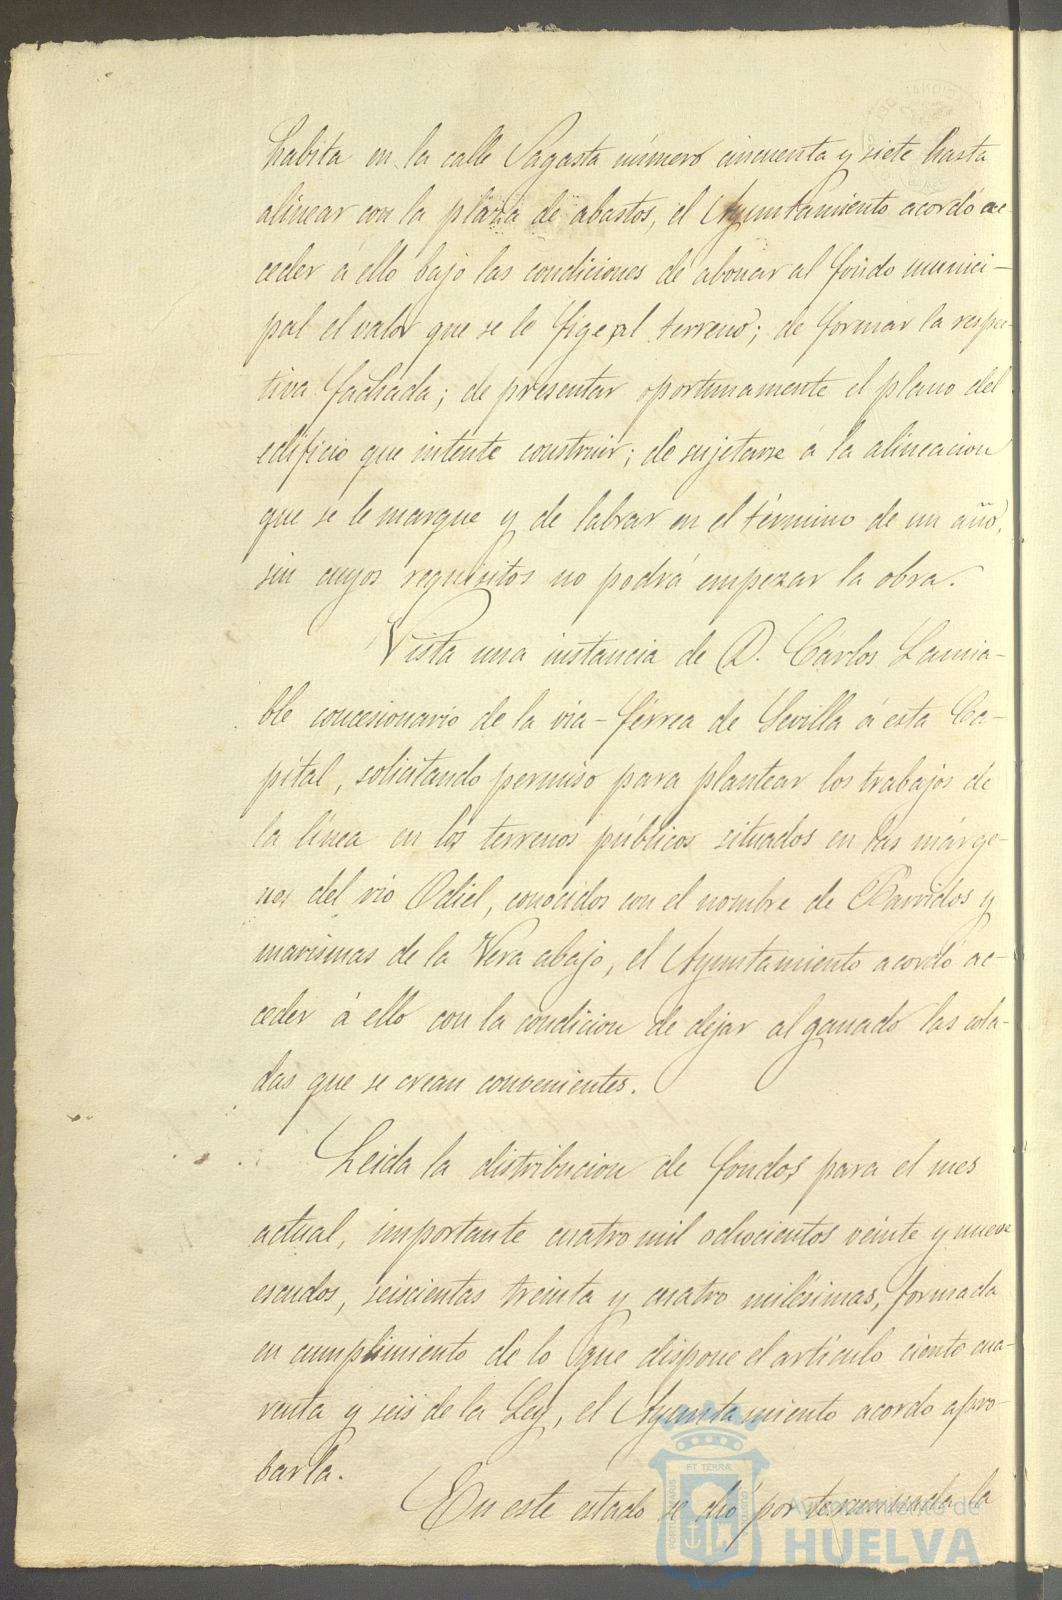 habita en la calle Sagasta número cincuenta y siete hasta
alinear con la plaza de abastos, el Ayuntamiento acordó ac-
ceder á ello bajo las condiciones de abonar al fondo munici-
pal el valor que se le fige al terreno; de formar la respec-
tiva fachada; de presentar oportunamente el plano del
edificio que intente construir; de sujetarse á la alineacion
que se le marque y de labrar en el término de un año,
sin cuyos requisitos no podrá empezar la obra.
Vista una instancia de D. Cárlos Lamia-
ble concesionario de la via-férrea de Sevilla á esta Ca-
pital, solicitando permiso para plantear los trabajos de
la línea en los terrenos públicos situados en las márge-
nes del rio Odiel, conocidos con el nombre de Barridos y
marismas de la Vera abajo, el Ayuntamiento acordó ac-
ceder á ello con la condicion de dejar al ganado las cola-
das que se crean convenientes.
Leida la distribucion de fondos para el mes
actual, importante cuatro mil ochocientos veinte y nueve
escudos, seiscientas treinta y cuatro milésimas, formada
en cumplimiento de lo que dispone el artículo ciento cua-
renta y seis de la Ley, el Ayuntamiento acordó apro-
barla.
En este estado se dió por terminada la
Ayuntamiento de
HUELVA